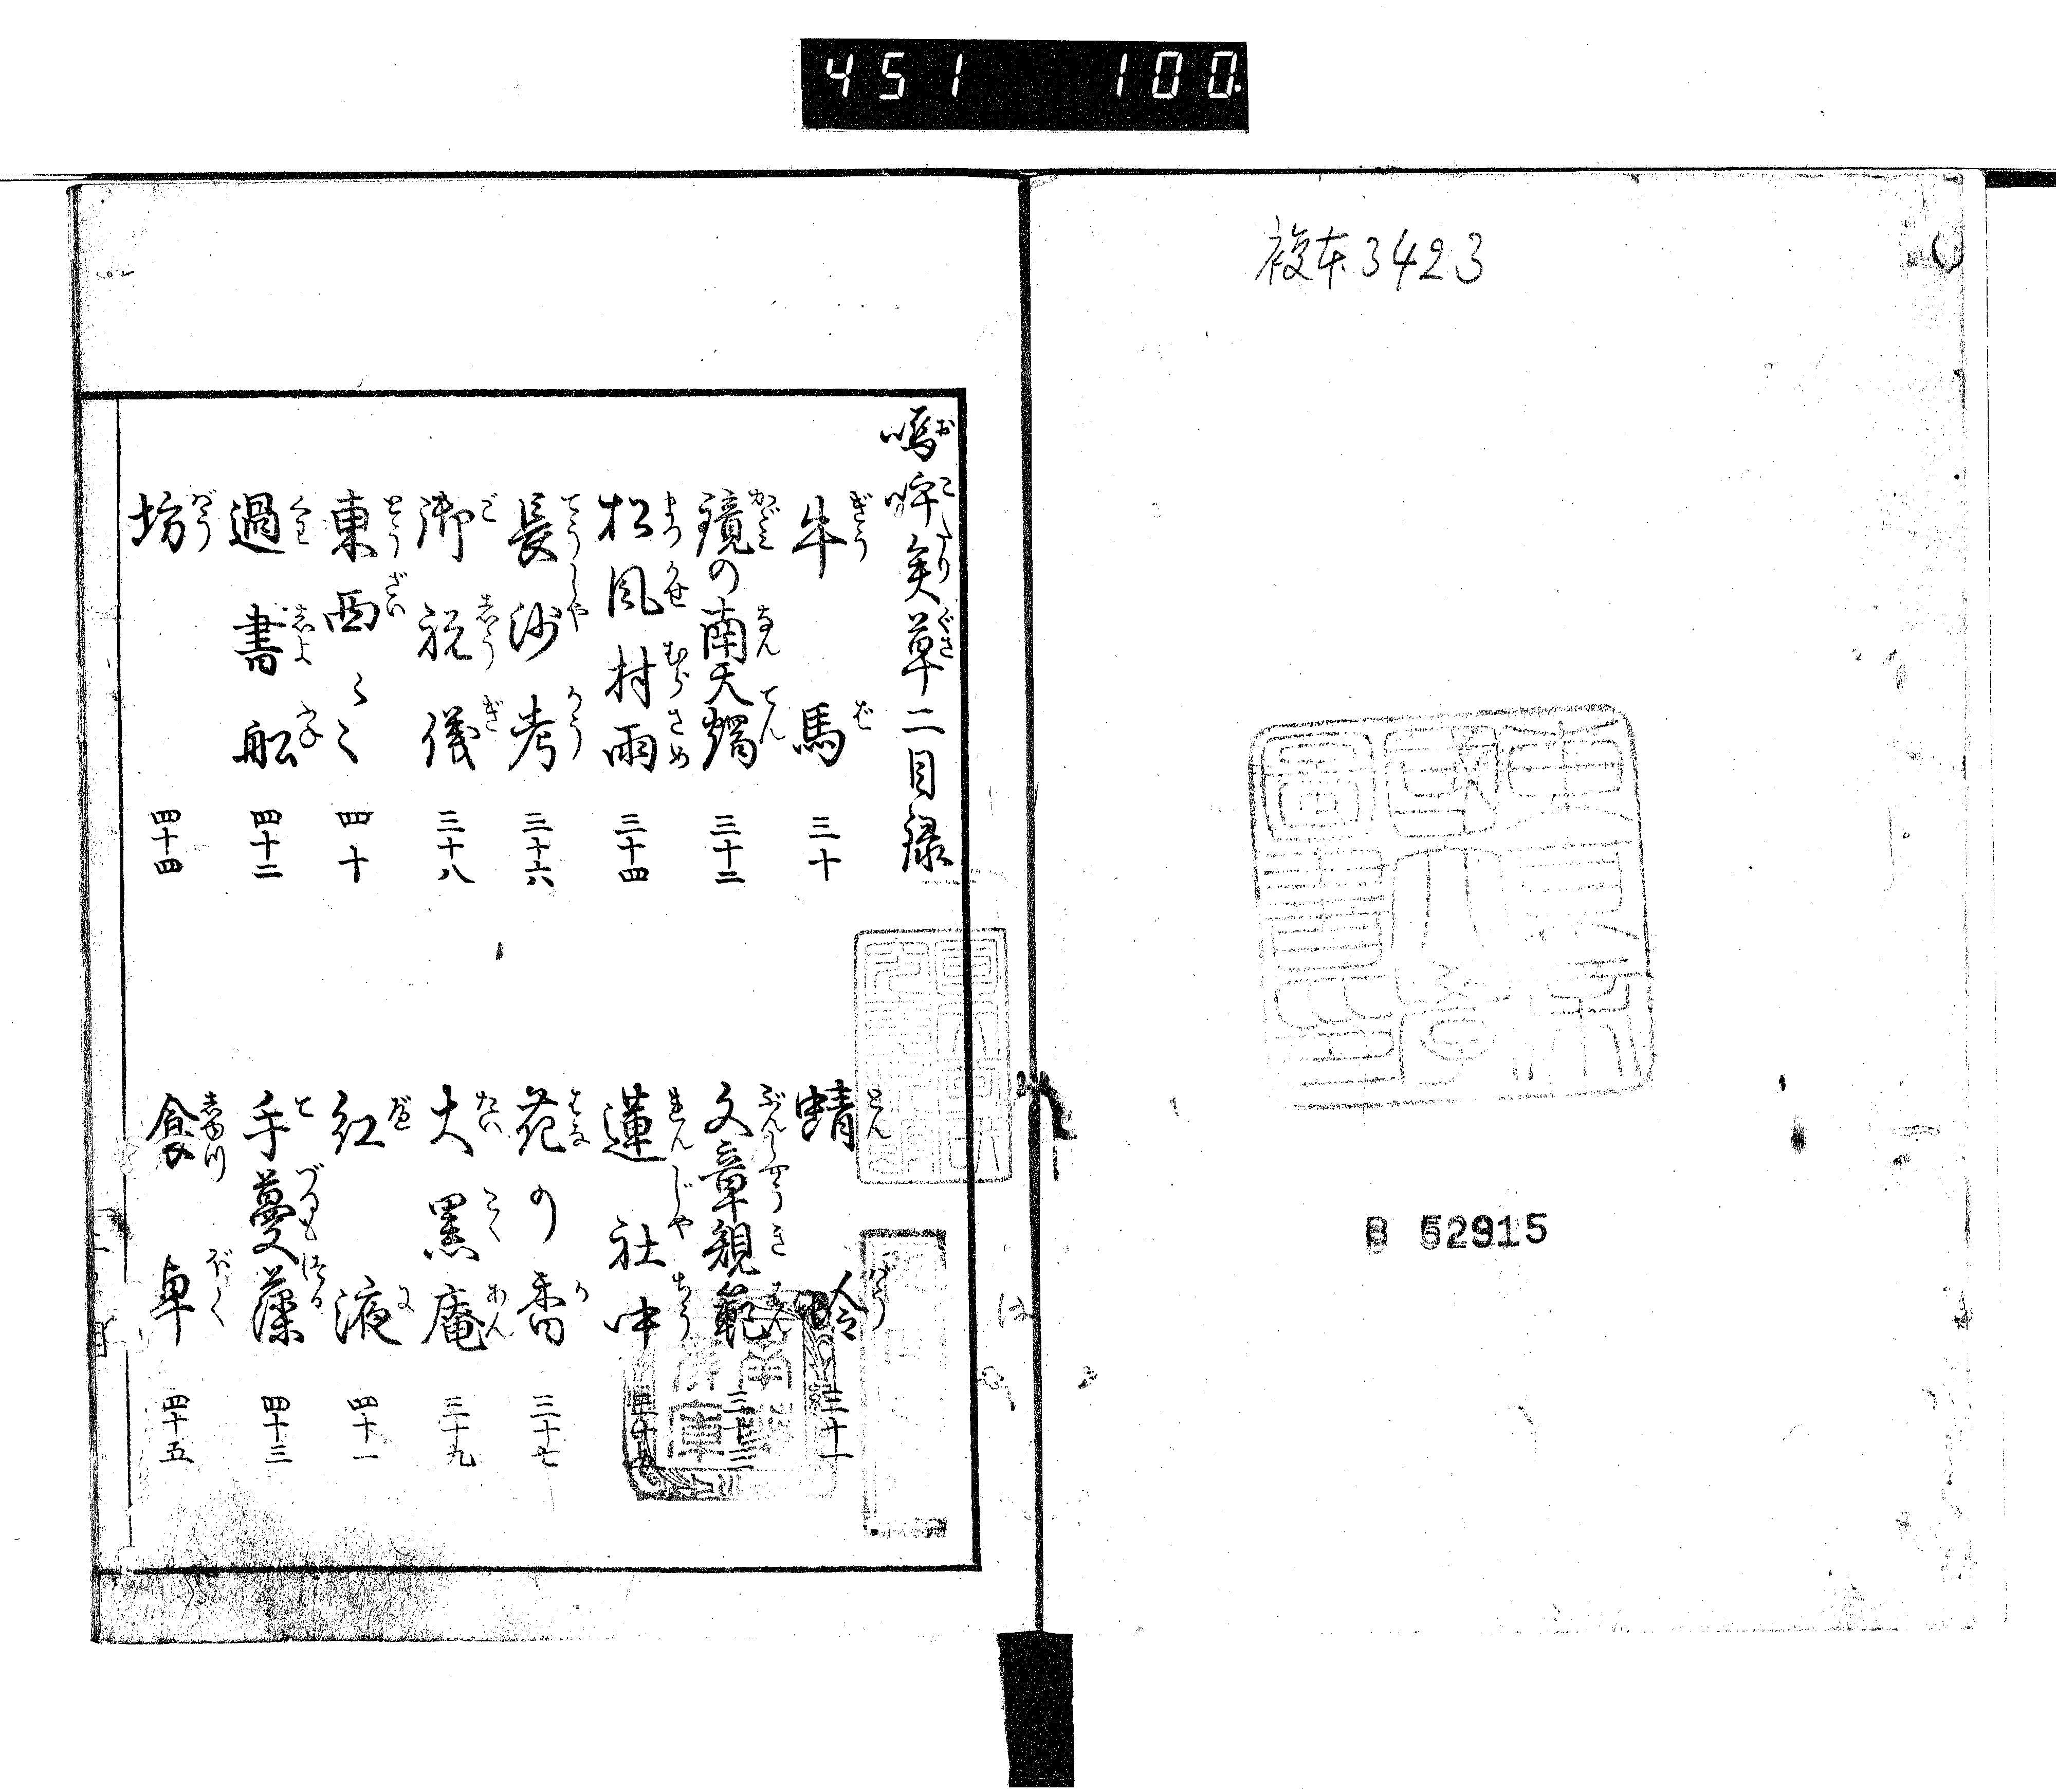 451 100.
複本3423
B 52915
嗚呼矣草二目録
牛馬 三十
鏡の南天燭 三十二
松風村雨 三十四
長沙考 三十六
御祝儀 三十八
東西〻〻 四十
過書船 四十二
坊 四十四
蜻蛉 三十一
文章規範 三十三
蓮社中 三十五
花の香 三十七
大黒庵 三十九
紅液 四十一
手蔓藻 四十三
食卓 四十五